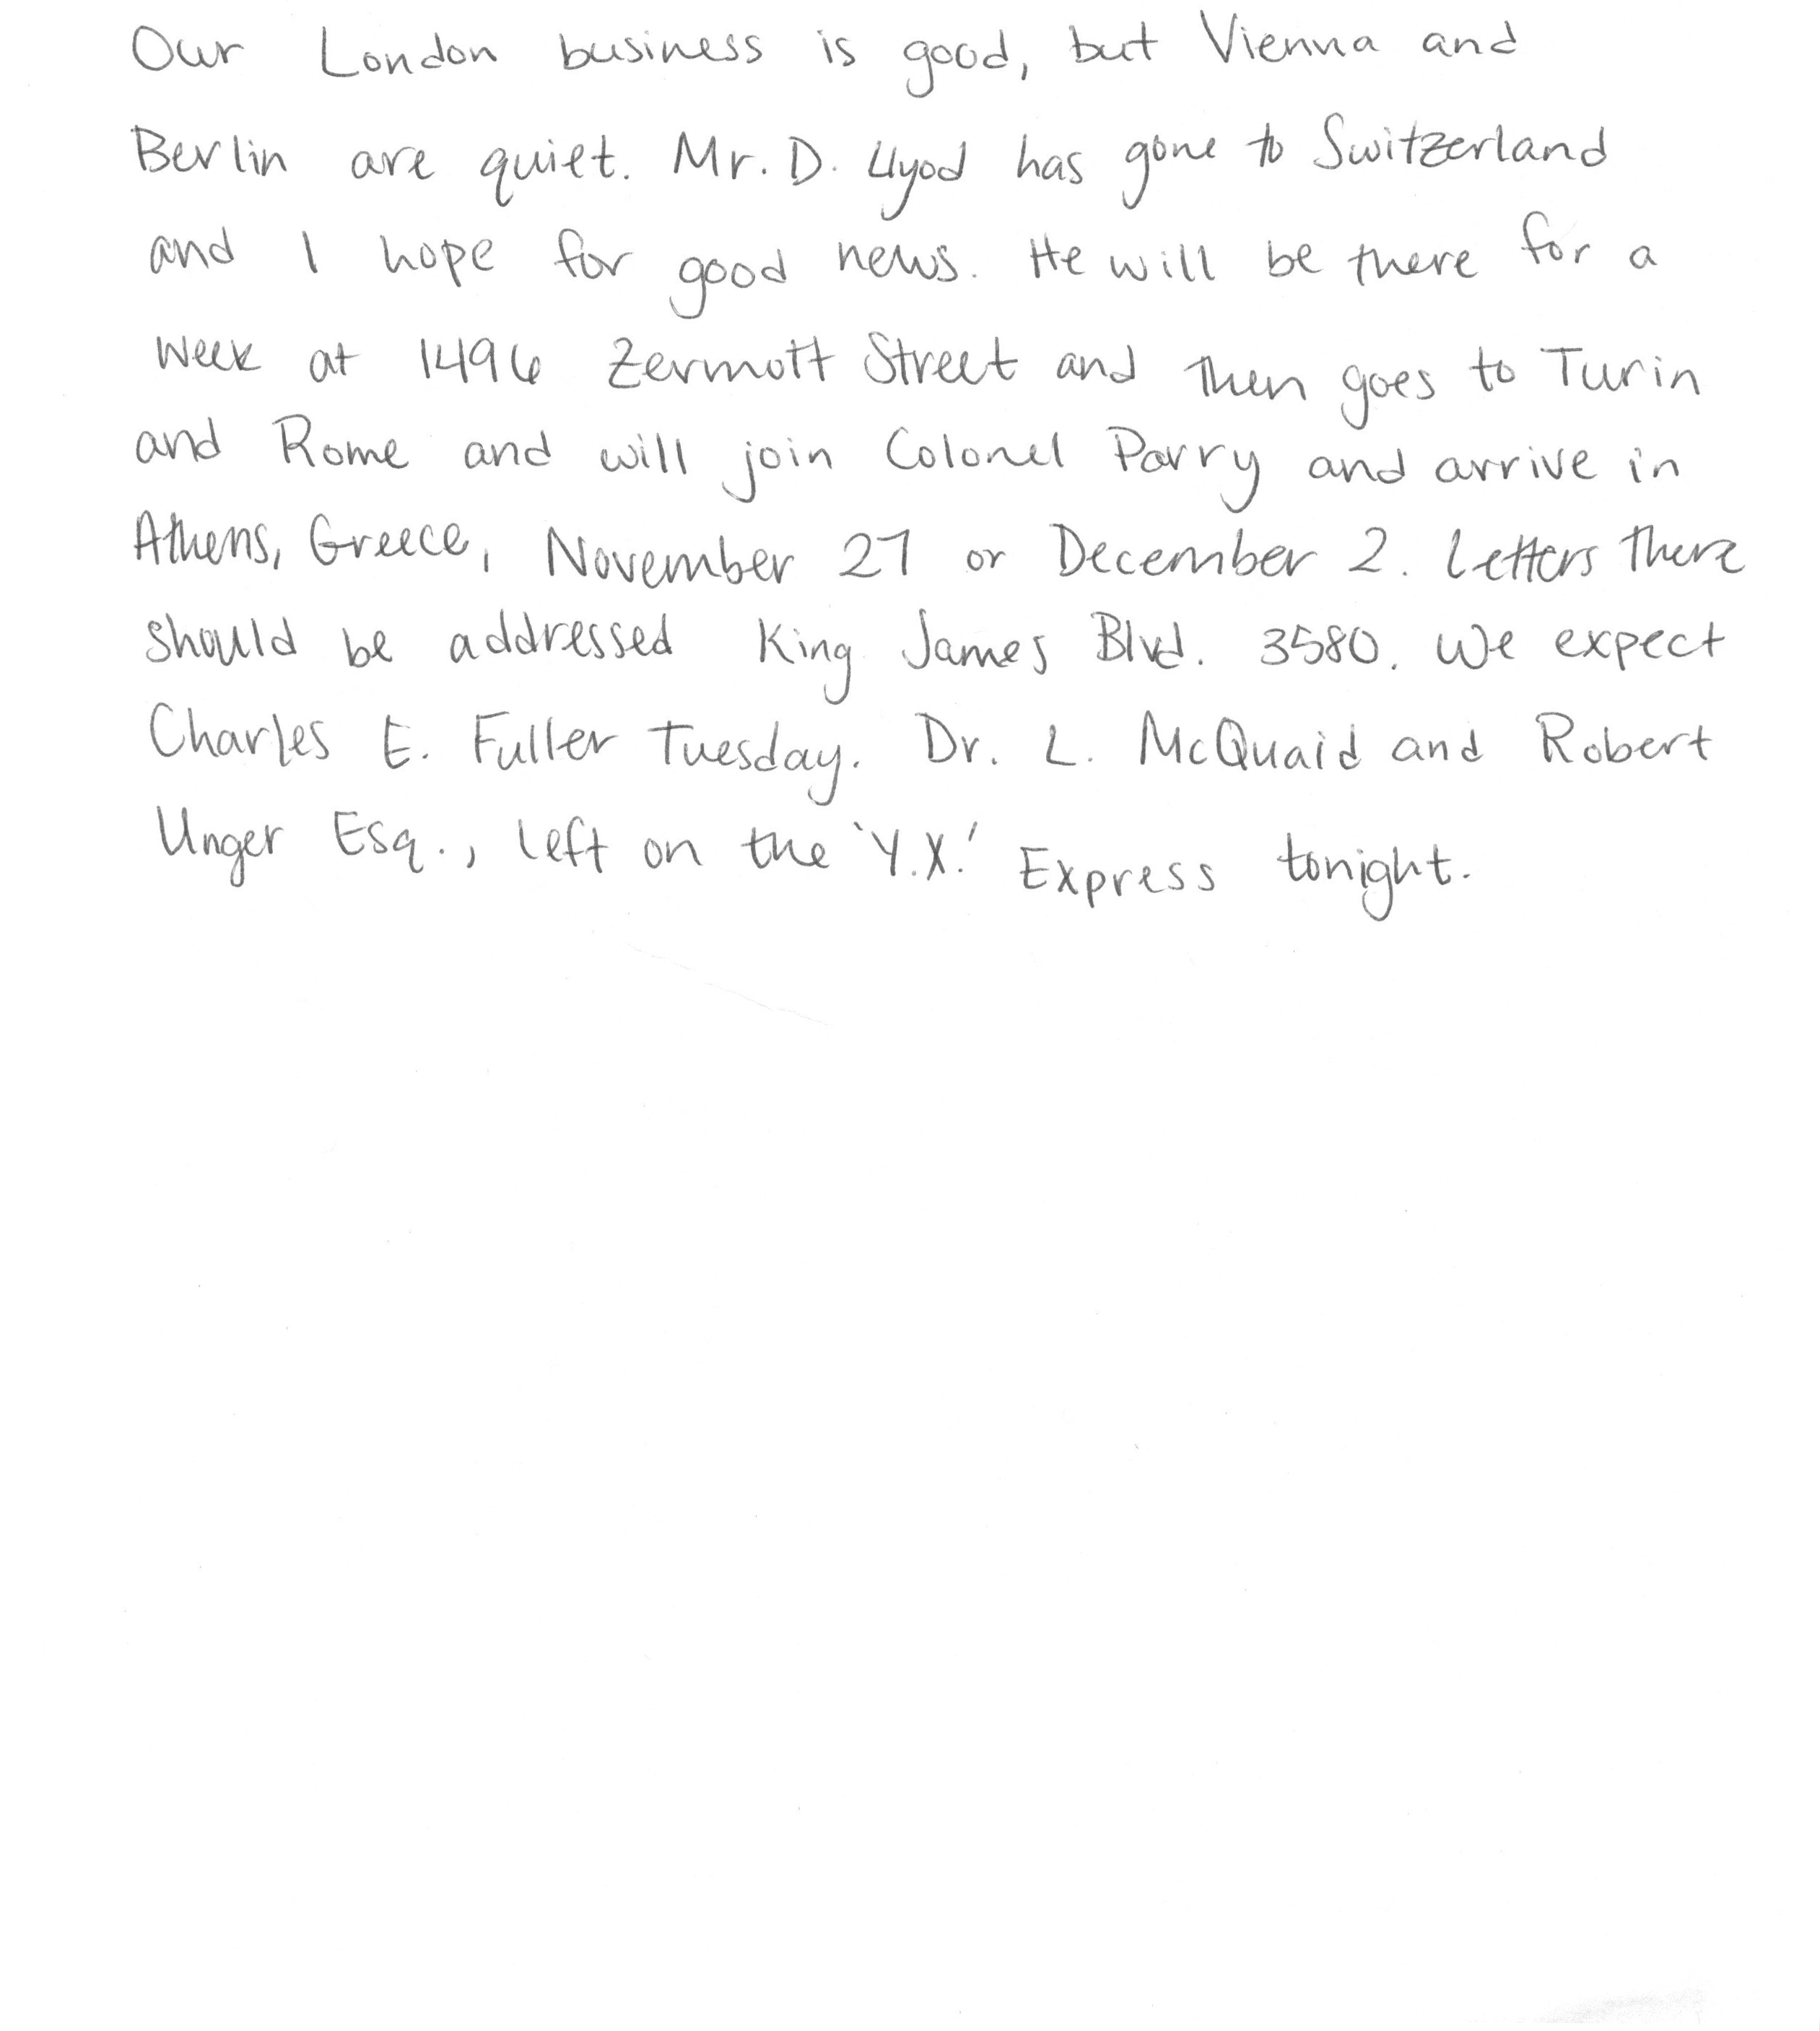 Our London business is good, but Vienna and
Berlin are quiet. Mr. D. Llyod has gone to Switzerland
and I hope for good news. He will be there for a
week at 1496 Zermott Street and then goes to Turin
and Rome and will join Colonel Parry and arrive in
Athens, Greece, November 27 or December 2. Letters there
should be addressed King James Blvd. 3580. We expect
Charles E. Fuller Tuesday. Dr. L. McQuaid and Robert
Unger Esq., left on the 'Y.X.' Express tonight.